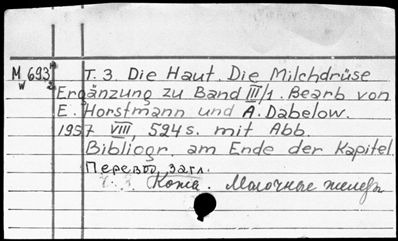 M 693 T. 3. Die Haut. Die Milchdrüse
w 2
Ergänzung zu Band III/1. Bearb von
E. Horstmann und A. Dabelow.
1957 VIII, 594 s. mit Abb.
Bibliogr. am Ende der Kapitel.
Перевод загл.
Кожа. Молочные железы